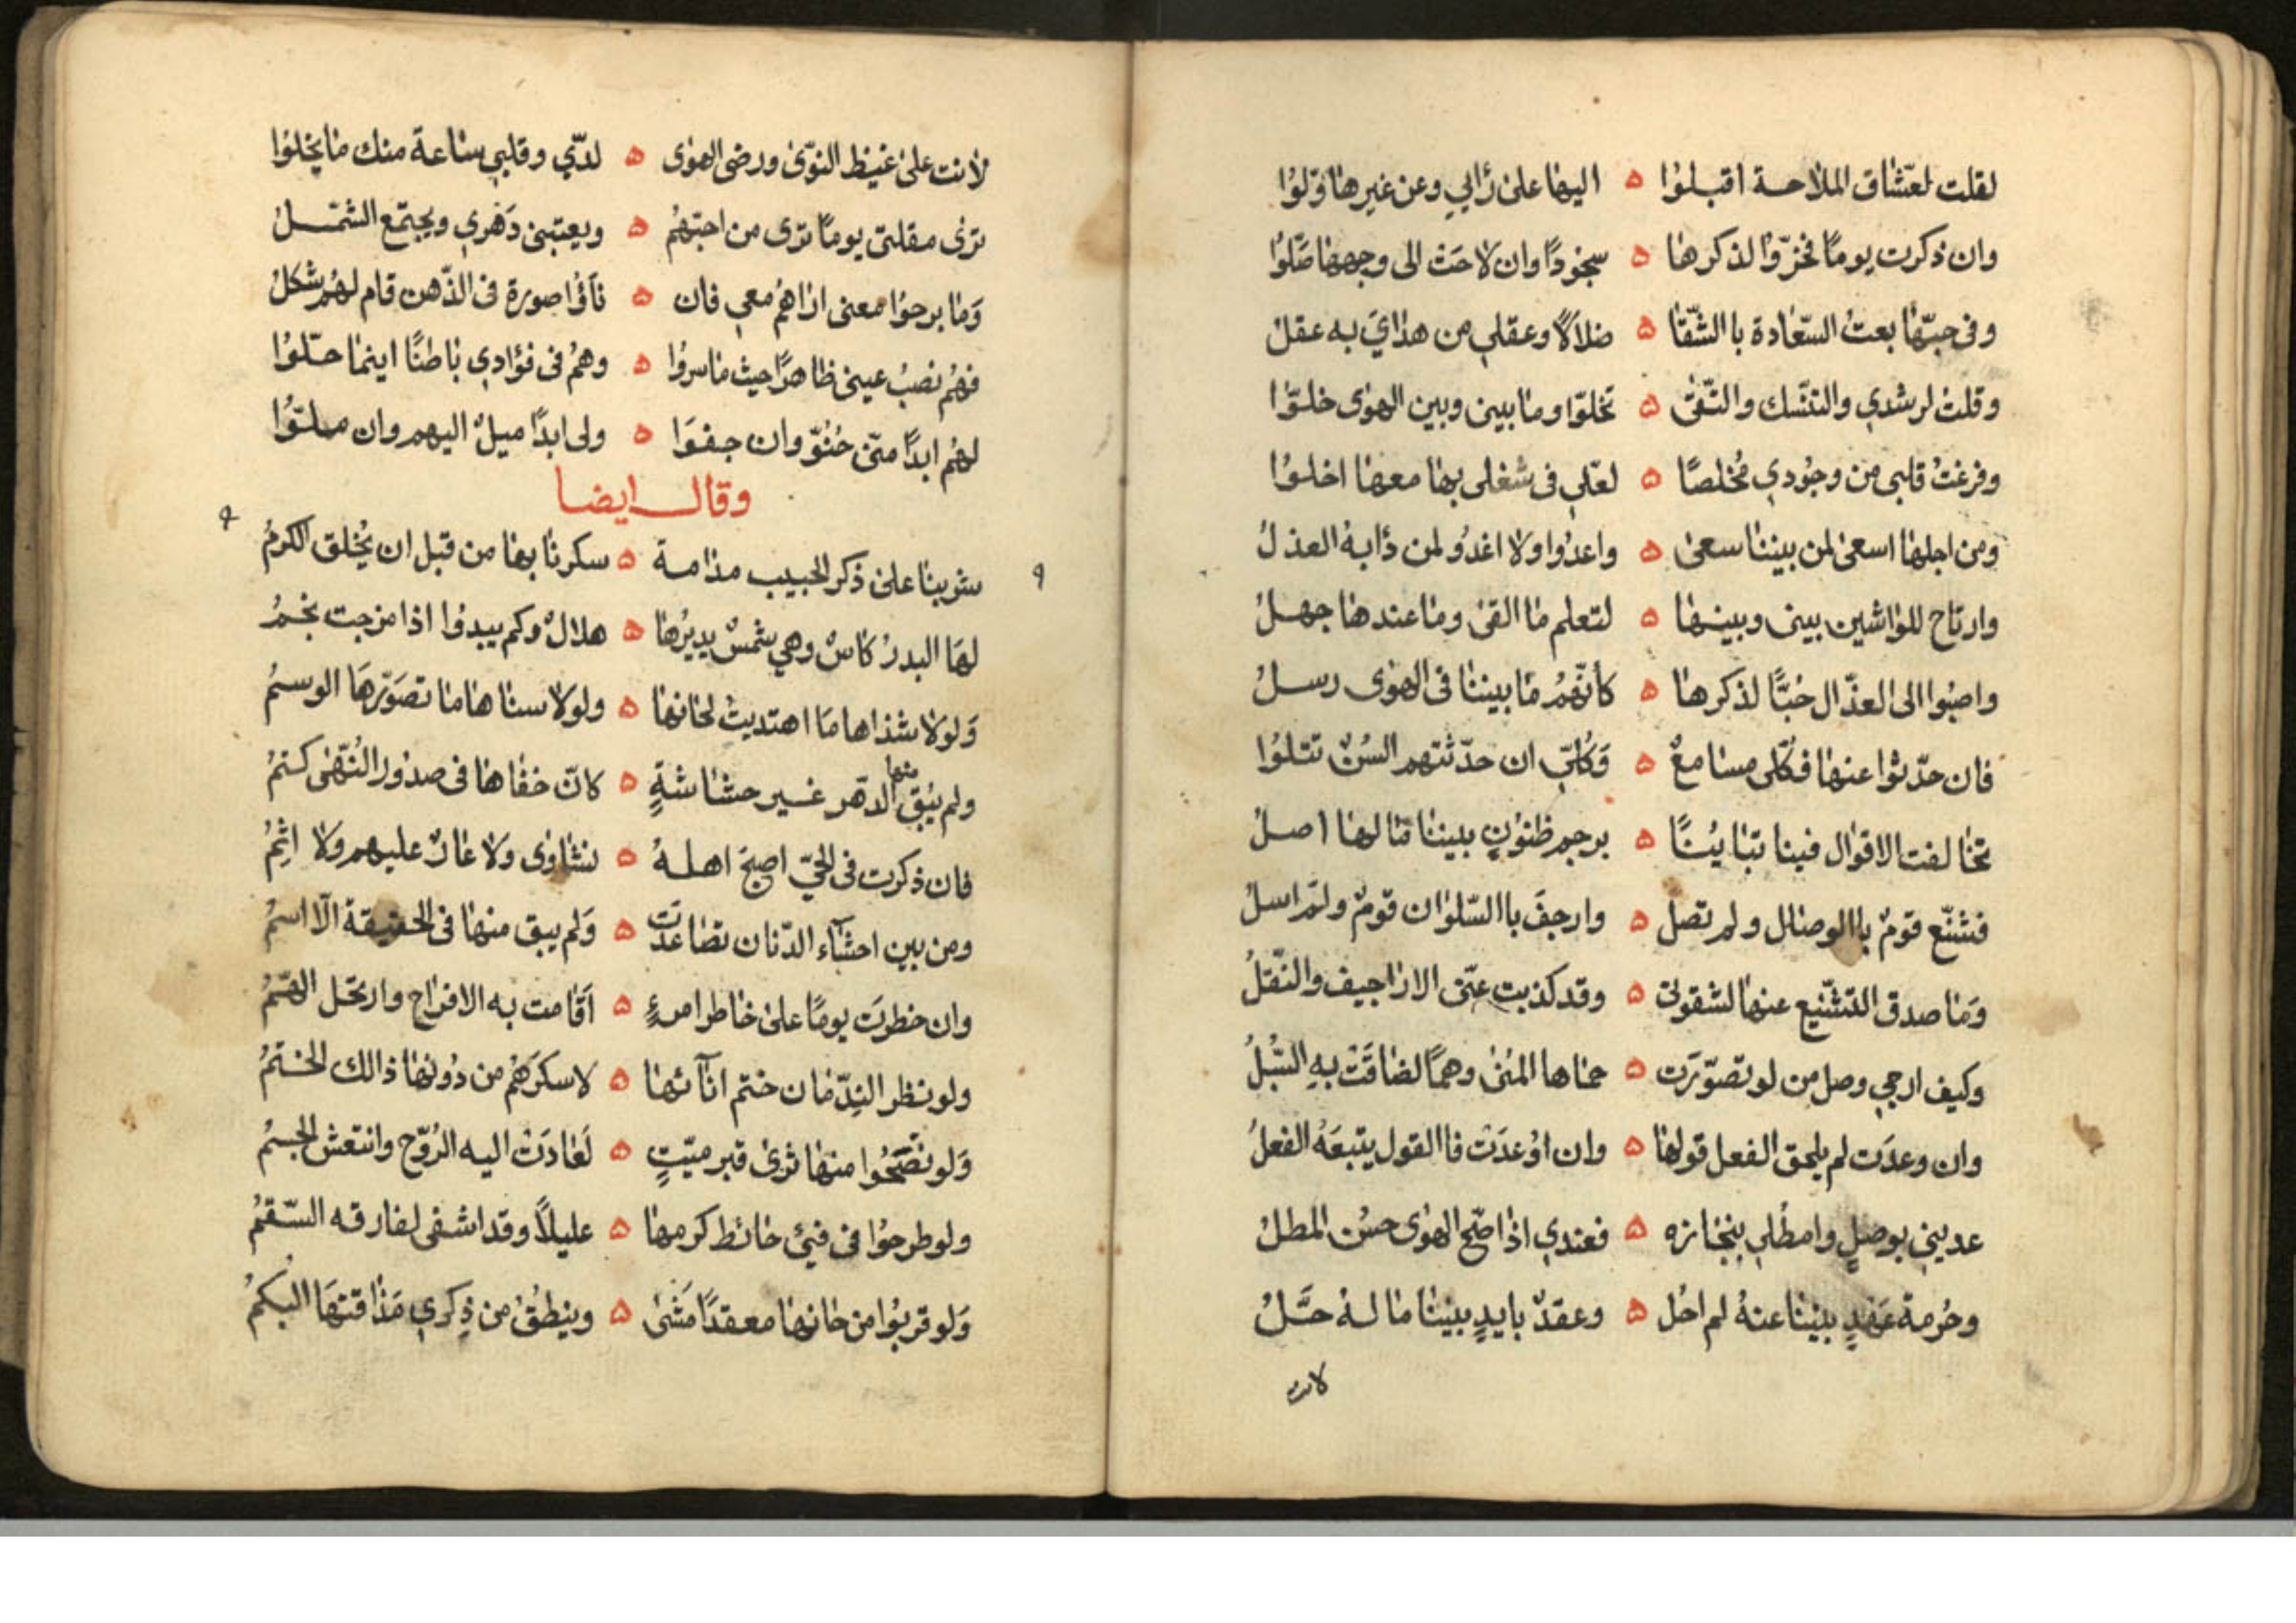 لقلت لعشّاق الملاحة اقبلوا ه اليها على رأيي وعن غيرها وَلّوا
وان ذكرت يومًا فخرّوا لذكرها ه سجودًا وان لاحت الى وجهها صَلّوا
وفى حبّها بعتُ السّعادة باالشّقا ه ضلالاً وعقلي من هدايَ به عقلُ
وقلت لرشدي والتنسّك والتّقى ه تخلّوا وما بينى وبين الهوى خلوّا
وفرغتُ قلبى من وجُودي مُخلصًا ه لعلّي فى شغلى بها معها اخلوا
ومن اجلها اسعى لمن بيننا سعى ه واعدُوا ولا اغدُو لمن دأبهُ العذلُ
وارتاح للواشين بينى وبينها ه لتعلم ما القى وما عندها جهلُ
واصبُوا الى العذّال حُبًّا لذكرها ه كأنّهمُ مَا بيننا فى الهوى رسلُ
فان حدّثوا عنها فكلّى مسامعٌ ه وَكُلّي ان حدّثتهم السُنٌ تتلوُا
تخالفت الاقوال فينا تبَايُنًا ه برجم ظنونٍ بيننا مَا لها اصلُ
فشنّع قومٌ باالوصال ولم تصل ه وارجفَ باالسّلوان قومٌ ولم اسلُ
وَما صدق التشنيع عنها لشقوتى ه وقد كذبت عنّى الاراجيف والنّقلُ
وكيف ارجي وصل من لو تصوّرَت ه حماها المُنى وهمًا لضاقَتْ بهِ السُّبلُ
وان وعدَت لم يلحق الفعل قولها ه وان اوُعدَتْ فاالقول يتبعَهُ الفعلُ
عديني بوصلٍ وامطُلي بنجازه ه فعندي اذا صّح الهوى حسُن المطلُ
وحُرمة عَهْدٍ بيننا عنهُ لم احُل ه وعقدٌ بايدٍ بيننا ما لهُ حَلُّ
لانت
لأنت على غيظ النوّى ورضى الهوى ه لدّي وقلبي ساعة منك ما يخلوُا
ترى مقلتى يومًا ترى من احبّهُم ه ويعتبنى دَهري ويجتمع الشمَلُ
وَما برحوُا معنى اراهُم معي فان ه نأوُا صورة فى الذّهن قام لهُم شكلُ
فهُم نصبُ عينى ظاهرًا حيث ما سروُا ه وهُم فى فؤادي باطنًا اينما حلّوُا
لهُم ابدًا منّى حُنُوّ وان جفوَا ه ولى ابدًا ميلٌ اليهم وان ملّوُا
وقال ايضا
شربنا على ذكر الحبيب مدامة ه سكرنا بها من قبل ان يُخلق الكرمُ
لهَا البدرُ كاسٌ وهي شمسٌ يديرُها ه هلالٌ وكم يبدوُا اذا مزجت نجمُ
وَلولا شذاها مَا اهتديتُ لحانها ه ولولا سناها ما تصَوّرهَا الوسمُ
ولم يُبق منها الدّهر غير حشاشةٍ ه كانّ خفاها فى صدُور النُّهى كتمُ
فان ذكرت فى الحيّ اصبح اهلهُ ه نشاوى وَلا عارٌ عليهم ولا اثِمُ
ومن بين احشآء الدّنان تصاعدَت ه وَلم يبق منها فى الحقيقة الّا اسمُ
وان خطرَت يومًا على خاطر امرءٍ ه اَقامت به الافراح وارتحل الهَمُّ
ولو نظر النِدّمان ختم انآئها ه لاسكرَهُم من دُونها ذالك الختمُ
وَلو نضَحُوا منها ثرى قبر ميّتٍ ه لَعَادَتْ اليه الرُوّح وانتعش الجسمُ
ولو طرحوُا فى فيئ حائط كرمها ه عليلاً وقد اشفى لفارقه السّقمُ
وَلو قربُوا من حانها معقدًا مَشَى ه وينطقُ من ذِكري مَذاقتهَا البكمُ